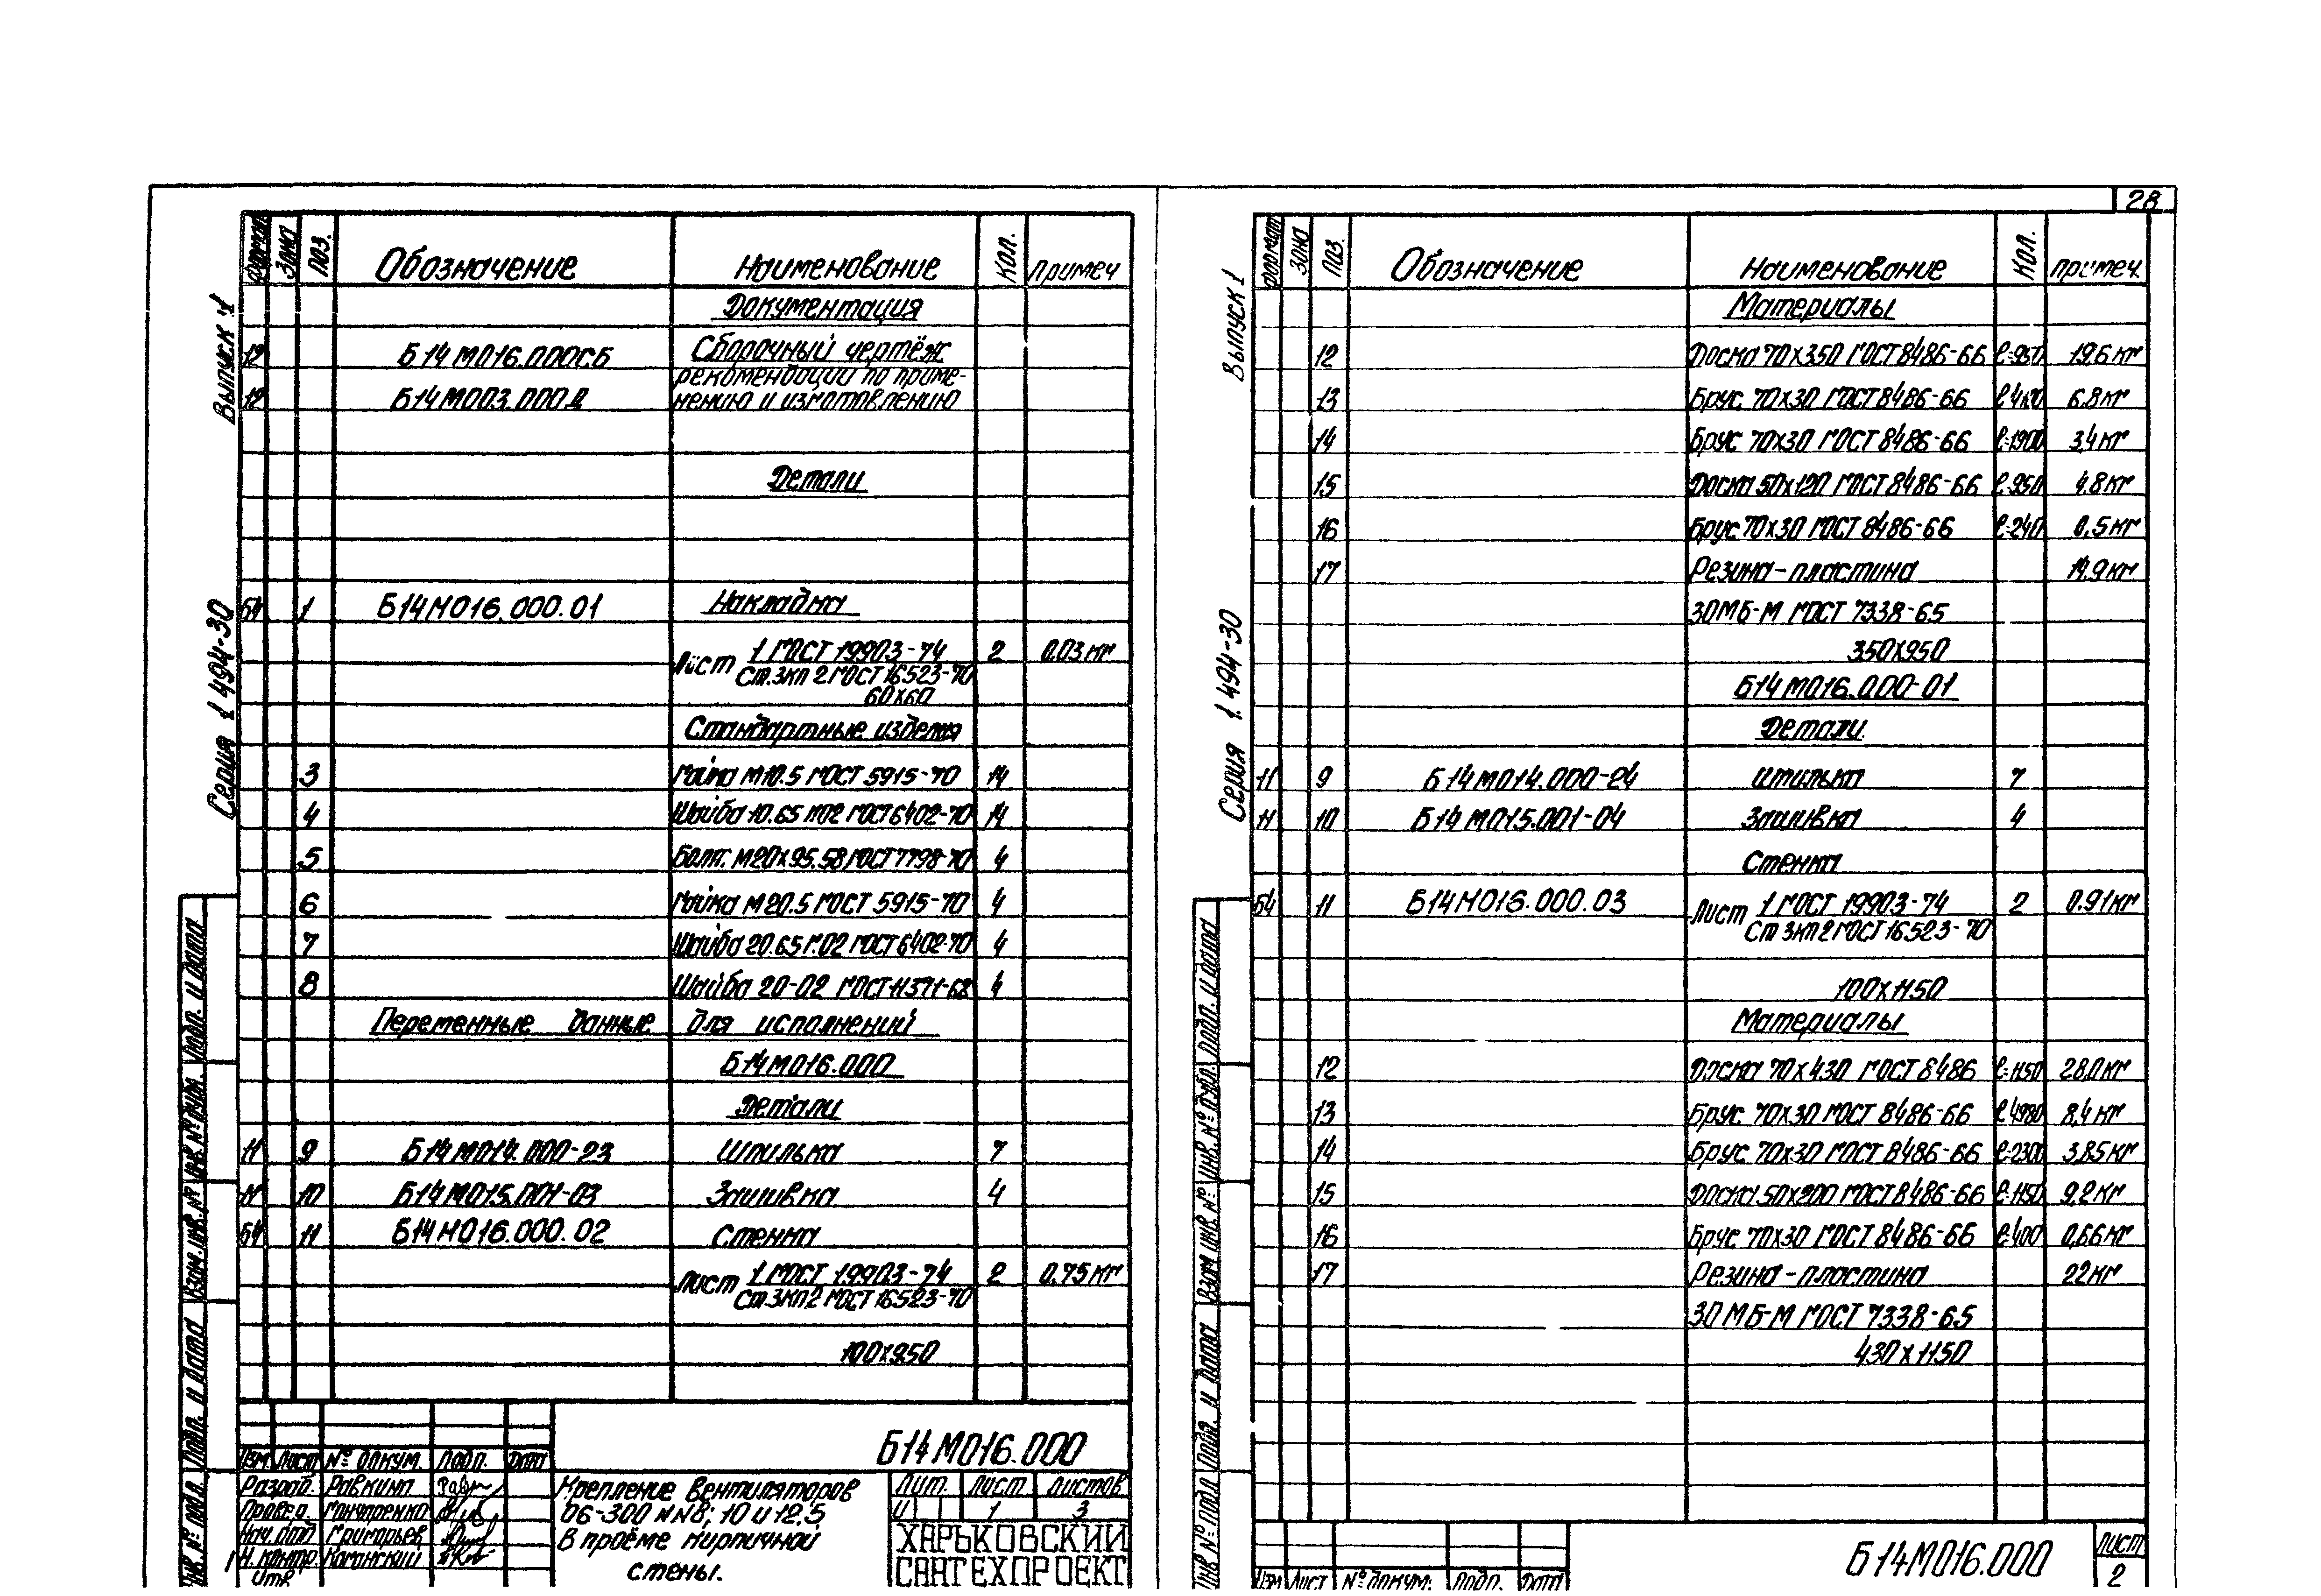 28
Выпуск 1
Серия 1.494-30
Формат Зона Поз. Обозначение Наименование Кол. Примеч
Документация
12 Б14М016.000СБ Сборочный чертёж
рекомендации по приме-
12 Б14М003.000Д нению и изготовлению
Детали
БЧ 1 Б14М016.000.01 Накладка
Лист 1 ГОСТ 19903-74 2 0.03 кг
Ст.3кп2 ГОСТ 16523-70
60х60
Стандартные изделия
3 Гайка М10.5 ГОСТ 5915-70 14
4 Шайба 10.65Г 02 ГОСТ 6402-70 14
5 Болт М20х95.58 ГОСТ 7798-70 4
6 Гайка М20.5 ГОСТ 5915-70 4
7 Шайба 20.65Г.02 ГОСТ 6402-70 4
8 Шайба 20-02 ГОСТ 11371-68 4
Переменные данные для исполнений
Б14М016.000
Детали
11 9 Б14М014.000-23 Шпилька 7
11 10 Б14М015.001-03 Зашивка 4
БЧ 11 Б14М016.000.02 Стенка
Лист 1 ГОСТ 19903-74 2 0.75 кг
Ст.3кп2 ГОСТ 16523-70
100х950
Инв. № подл. Подп. и дата Взам. инв. № Инв. № дубл. Подп. и дата
Б14М016.000
Изм Лист № докум. Подп. Дата
Разраб. Равкина
Провер. Гончаренко
Нач.отд Григорьев
Н.контр. Каганский
Утв
Крепление вентиляторов
06-300 №№8; 10 и 12.5
в проёме кирпичной
стены.
Лит. Лист Листов
И 1 3
ХАРЬКОВСКИЙ
САНТЕХПРОЕКТ
Выпуск 1
Серия 1.494-30
Формат Зона Поз. Обозначение Наименование Кол. Примеч.
Материалы
12 Доска 70х350 ГОСТ 8486-66 ℓ=950 19,6 кг
13 Брус 70х30 ГОСТ 8486-66 6,8 кг
14 Брус 70х30 ГОСТ 8486-66 ℓ=1900 3,4 кг
15 Доска 50х120 ГОСТ 8486-66 ℓ=950 4.8 кг
16 Брус 70х30 ГОСТ 8486-66 ℓ=240 0,5 кг
17 Резина-пластина 14.9 кг
30МБ-М ГОСТ 7338-65
350х950
Б14М016.000-01
Детали
11 9 Б14М014.000-24 Шпилька 7
11 10 Б14М015.001-04 Зашивка 4
Стенка
БЧ 11 Б14М016.000.03 Лист 1 ГОСТ 19903-74 2 0.91 кг
Ст 3кп2 ГОСТ 16523-70
100х1150
Материалы
12 Доска 70х430 ГОСТ 8486 ℓ=1150 28,0 кг
13 Брус 70х30 ГОСТ 8486-66 ℓ=4980 8,4 кг
14 Брус 70х30 ГОСТ 8486-66 ℓ=2300 3,85 кг
15 Доска 50х200 ГОСТ 8486-66 ℓ=1150 9,2 кг
16 Брус 70х30 ГОСТ 8486-66 ℓ=400 0,66 кг
17 Резина-пластина 22 кг
30МБ-М ГОСТ 7338-65
430х1150
Инв № подл Подп. и дата Взам инв. № Инв. № дубл. Подп. и дата
Изм Лист № докум. Подп. Дата
Б14М016.000
Лист
2